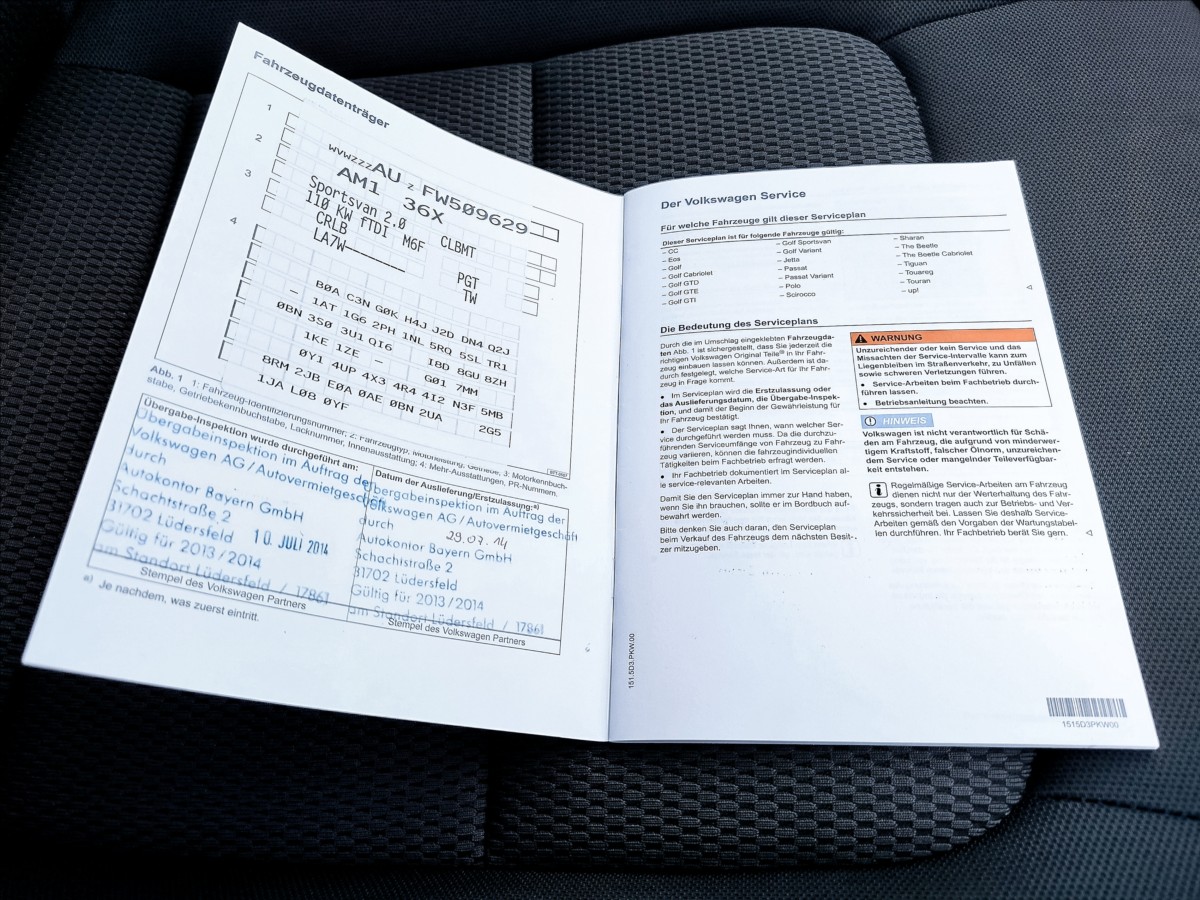 Fahrzeugdatenträger
1
2
3
4
WVWZZZ AU Z FW509629
AM1 36X
Sportsvan 2.0
110 KW fTDI M6F CLBMT
CRLB PGT
LA7W TW
B0A C3N G0K H4J J2D DN4 Q2J
- 1AT 1G6 2PH 1NL 5RQ 5SL TR1
0BN 3S0 3U1 QI6 I8D 8GU 8ZH
1KE 1ZE - G01 7MM
0Y1 4UP 4X3 4R4 4I2 N3F 5MB
8RM 2JB E0A 0AE 0BN 2UA
1JA L08 0YF 2G5
Abb. 1 1: Fahrzeug-Identifizierungsnummer; 2: Fahrzeugtyp, Motorleistung, Getriebe; 3: Motorkennbuch-
stabe, Getriebekennbuchstabe, Lacknummer, Innenausstattung; 4: Mehr-Ausstattungen, PR-Nummern.
Übergabe-Inspektion wurde durchgeführt am:
Übergabeinspektion im Auftrag der
Volkswagen AG / Autovermietgeschäft
durch
Autokontor Bayern GmbH
Schachtstraße 2
31702 Lüdersfeld 10. JULI 2014
Gültig für 2013/2014
am Standort Lüdersfeld / 17861
Stempel des Volkswagen Partners
Datum der Auslieferung/Erstzulassung:a)
Übergabeinspektion im Auftrag der
Volkswagen AG / Autovermietgeschäft
durch 29.07.14
Autokontor Bayern GmbH
Schachtstraße 2
31702 Lüdersfeld
Gültig für 2013/2014
am Standort Lüdersfeld / 17861
Stempel des Volkswagen Partners
a) Je nachdem, was zuerst eintritt.
Der Volkswagen Service
Für welche Fahrzeuge gilt dieser Serviceplan
Dieser Serviceplan ist für folgende Fahrzeuge gültig:
– CC
– Eos
– Golf
– Golf Cabriolet
– Golf GTD
– Golf GTE
– Golf GTI
– Golf Sportsvan
– Golf Variant
– Jetta
– Passat
– Passat Variant
– Polo
– Scirocco
– Sharan
– The Beetle
– The Beetle Cabriolet
– Tiguan
– Touareg
– Touran
– up!
Die Bedeutung des Serviceplans
Durch die im Umschlag eingeklebten Fahrzeugda-
ten Abb. 1 ist sichergestellt, dass Sie jederzeit die
richtigen Volkswagen Original Teile® in Ihr Fahr-
zeug einbauen lassen können. Außerdem ist da-
durch festgelegt, welche Service-Art für Ihr Fahr-
zeug in Frage kommt.
• Im Serviceplan wird die Erstzulassung oder
das Auslieferungsdatum, die Übergabe-Inspek-
tion, und damit der Beginn der Gewährleistung für
Ihr Fahrzeug bestätigt.
• Der Serviceplan sagt Ihnen, wann welcher Ser-
vice durchgeführt werden muss. Da die durchzu-
führenden Serviceumfänge von Fahrzeug zu Fahr-
zeug variieren, können die fahrzeugindividuellen
Tätigkeiten beim Fachbetrieb erfragt werden.
• Ihr Fachbetrieb dokumentiert im Serviceplan al-
le service-relevanten Arbeiten.
Damit Sie den Serviceplan immer zur Hand haben,
wenn Sie ihn brauchen, sollte er im Bordbuch auf-
bewahrt werden.
Bitte denken Sie auch daran, den Serviceplan
beim Verkauf des Fahrzeugs dem nächsten Besit-
zer mitzugeben.
WARNUNG
Unzureichender oder kein Service und das
Missachten der Service-Intervalle kann zum
Liegenbleiben im Straßenverkehr, zu Unfällen
sowie schweren Verletzungen führen.
• Service-Arbeiten beim Fachbetrieb durch-
führen lassen.
• Betriebsanleitung beachten.
HINWEIS
Volkswagen ist nicht verantwortlich für Schä-
den am Fahrzeug, die aufgrund von minderwer-
tigem Kraftstoff, falscher Ölnorm, unzureichen-
dem Service oder mangelnder Teileverfügbar-
keit entstehen.
Regelmäßige Service-Arbeiten am Fahrzeug
dienen nicht nur der Werterhaltung des Fahr-
zeugs, sondern tragen auch zur Betriebs- und Ver-
kehrssicherheit bei. Lassen Sie deshalb Service-
Arbeiten gemäß den Vorgaben der Wartungstabel-
len durchführen. Ihr Fachbetrieb berät Sie gern.
151.5D3.PKW.00
1515D3PKW00